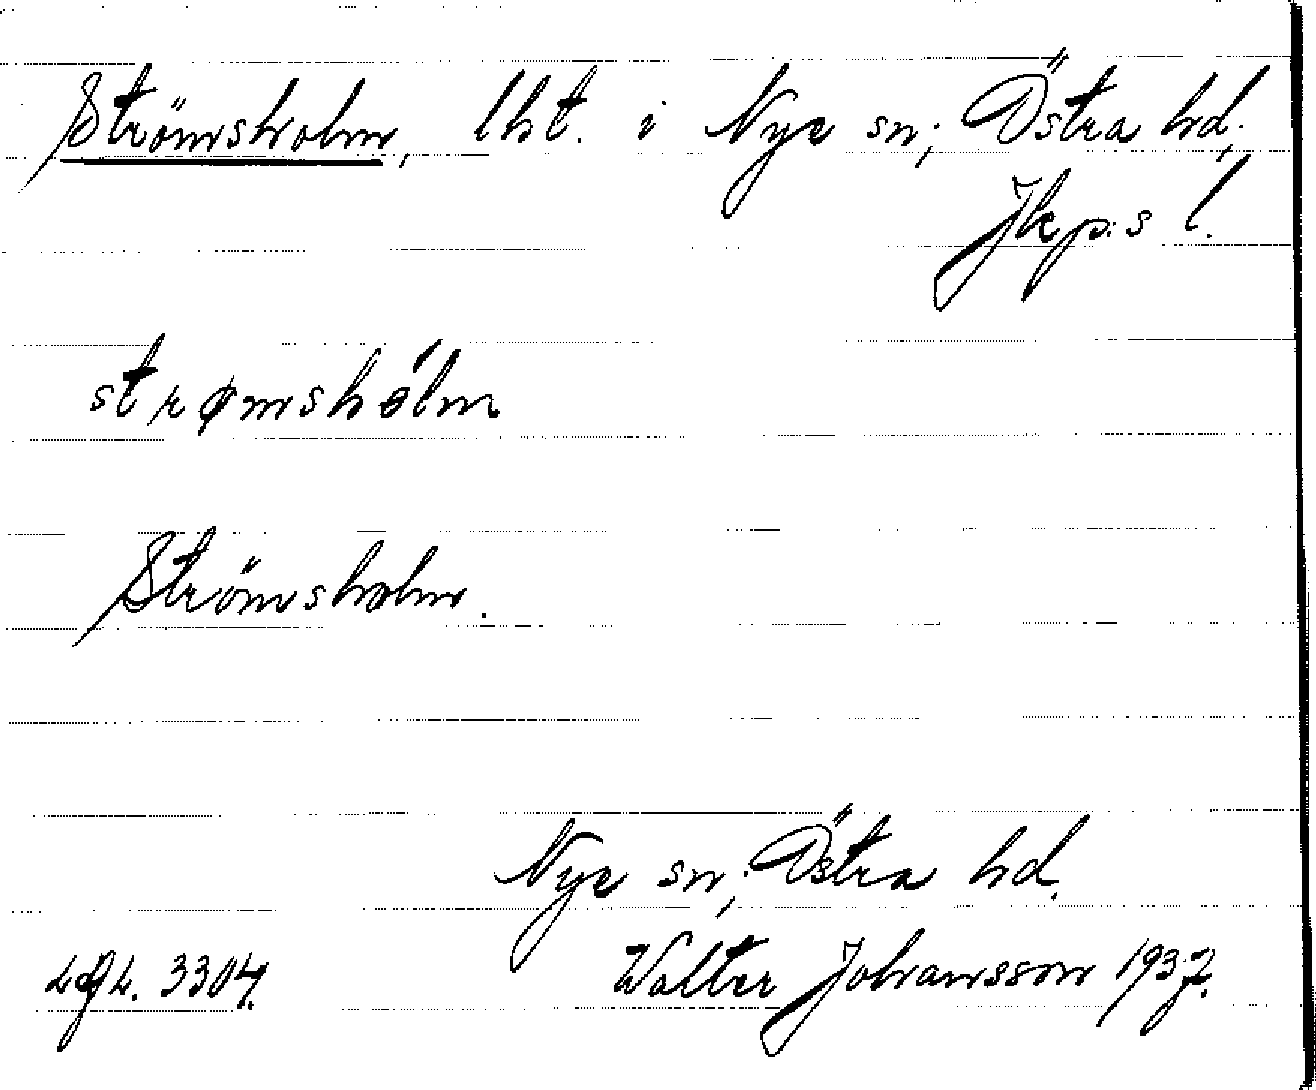 Strömsholm, lht. i Nye sn; Östra hd;
Jkp:s l.
strømshólm
Strömsholm.
Nye sn; Östra hd.
Walter Johansson 1937.
LgL. 3304.